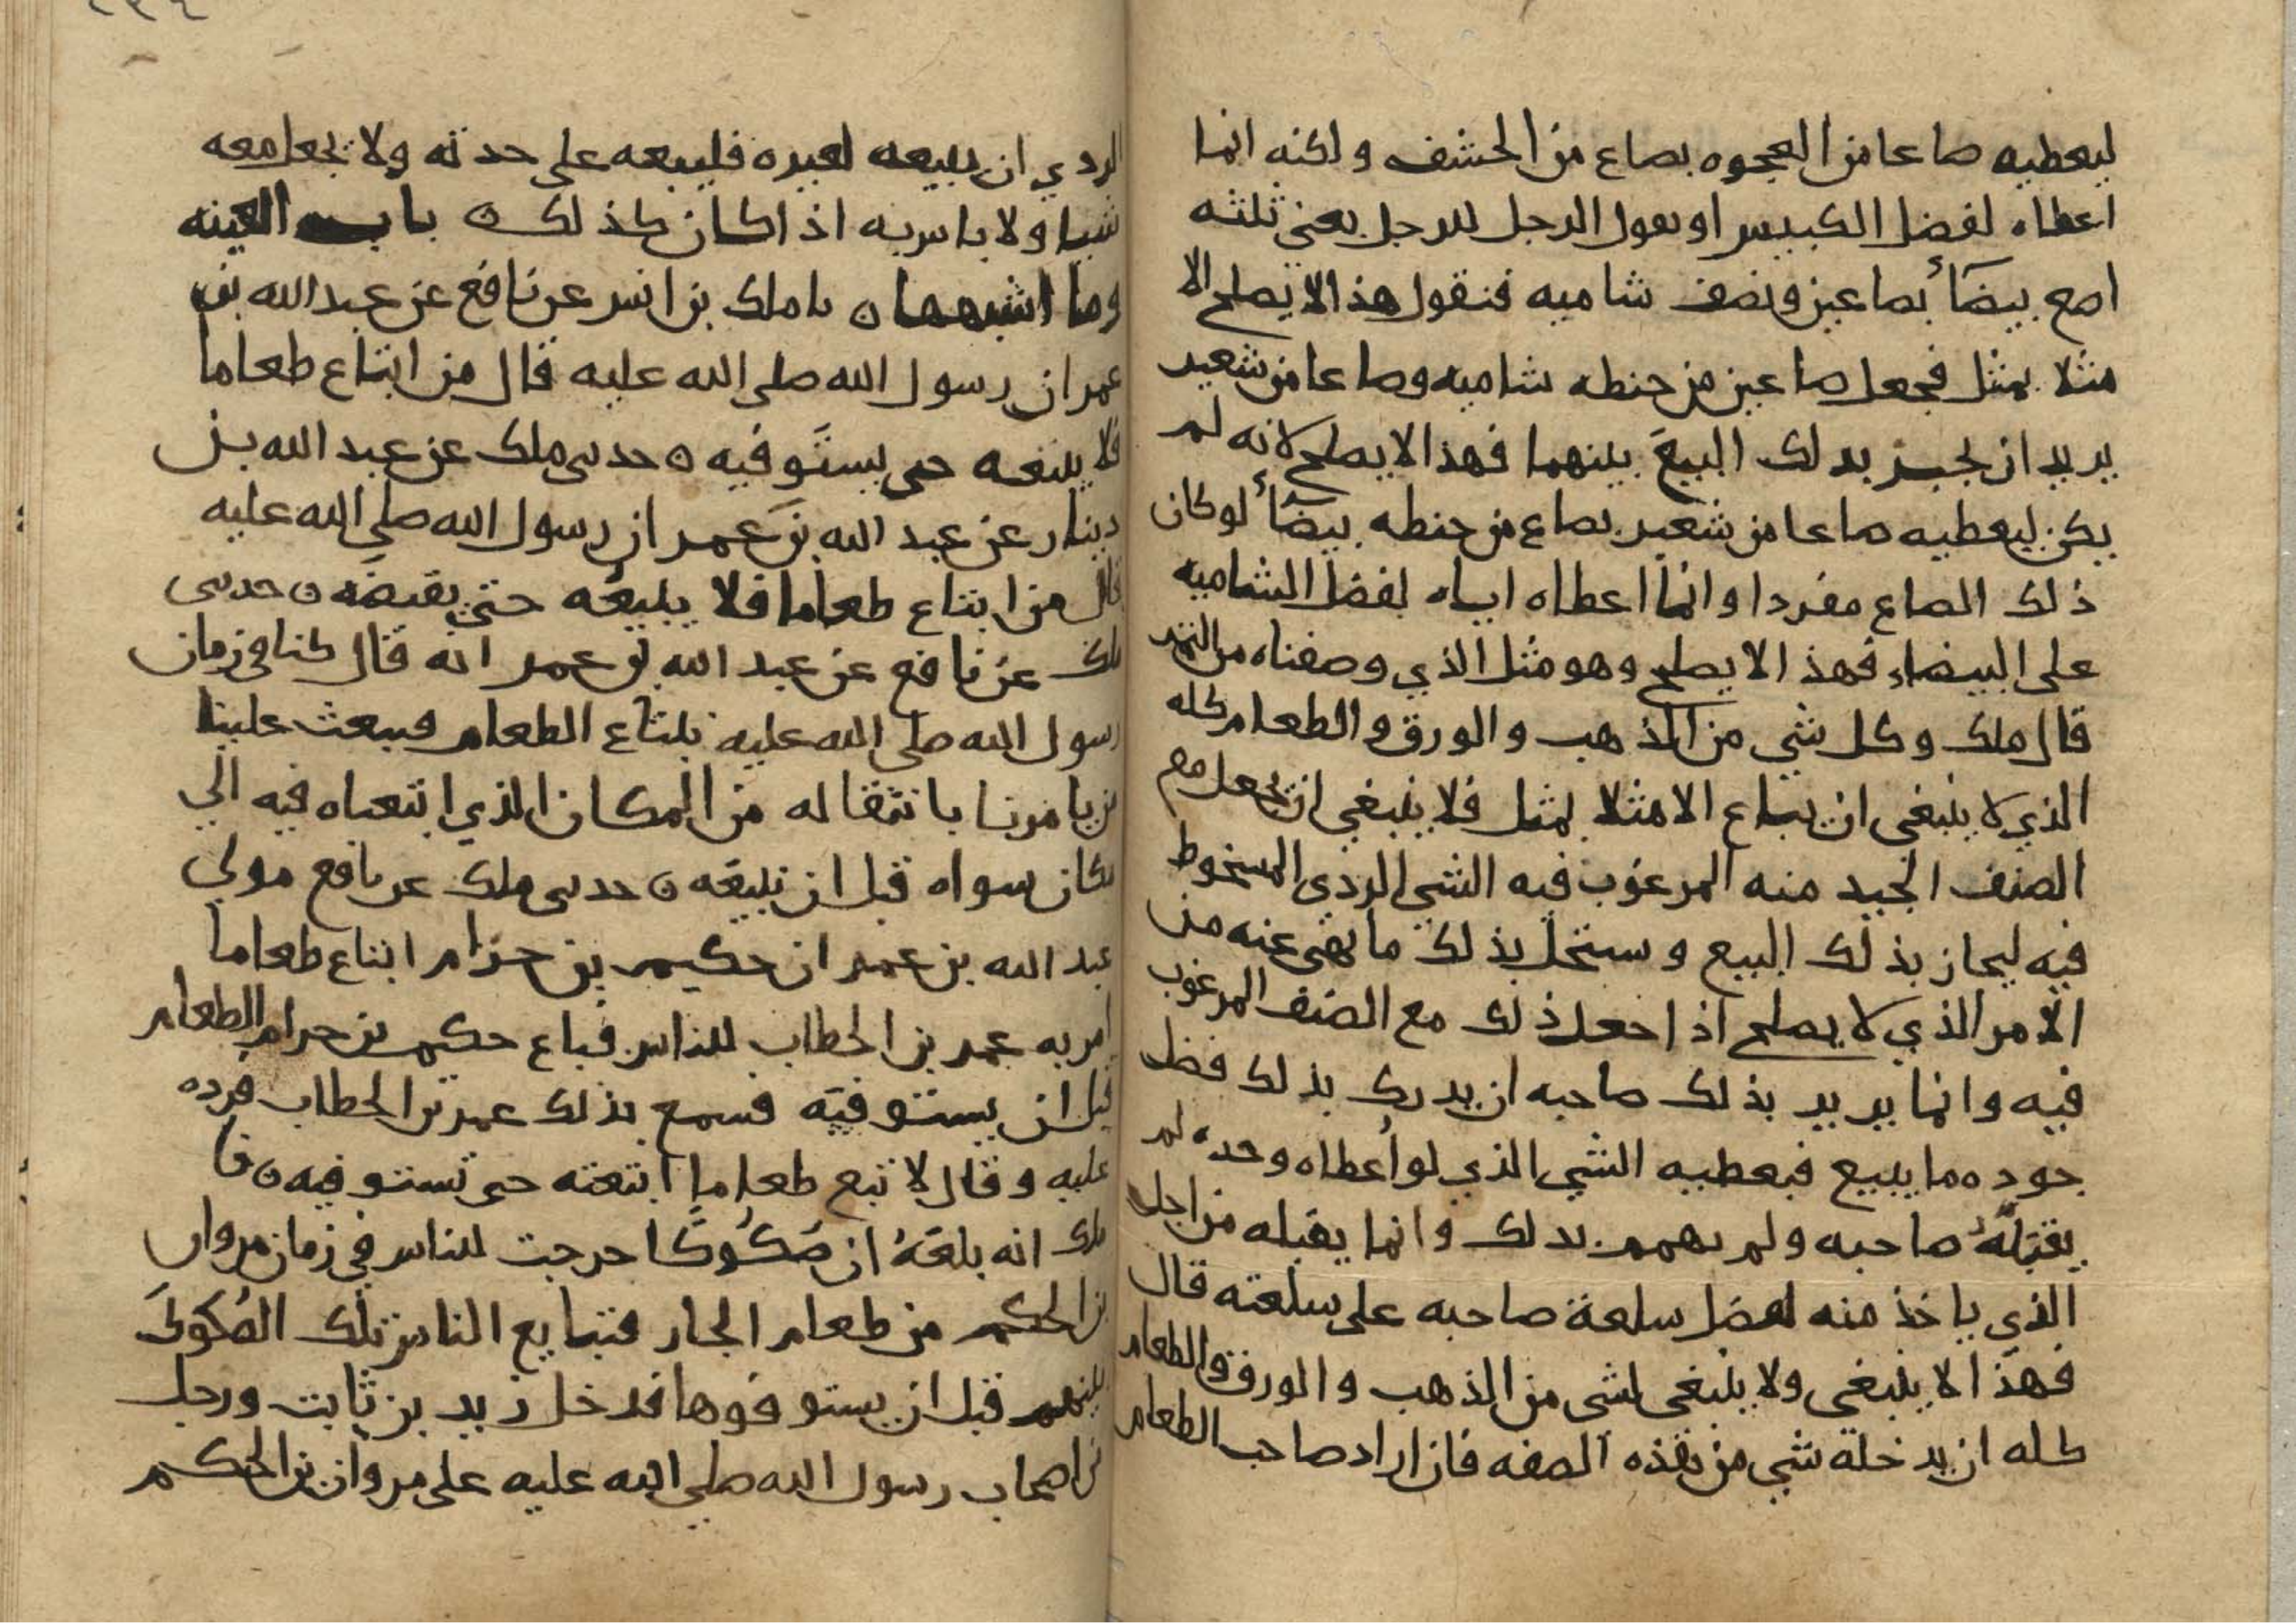 ليعطيه صاعا من العجوه بصاع من الحشف ولكنه انما
اعطاه لفضل الكبيس او يقول الرجل للرجل بعني ثلثه
اصع بيضأ بصاعين ونصف شاميه فنقول هذا لا يصلح الا
مثلا بمثل فيجعل صاعين من حنطه شاميه وصاعا من شعير
يريد ان يجيز بذلك البيع بينهما فهذا لا يصلح لانه لم
يكن ليعطيه صاعا من شعير بصاع من حنطه بيضأ لو كان
ذلك الصاع مفردا وانما اعطاه اياه لفضل الشاميه
على البيضاء فهذا لا يصلح وهو مثل الذي وصفناه من التمر
قال ملك وكل شي من الذهب والورق والطعام كله
الذي لا ينبغى ان يباع الا مثلا بمثل فلا ينبغي ان يجعل مع
الصنف الجيد منه المرغوب فيه الشي الردى المسخوط
فيه ليجاز بذلك البيع وستحل بذلك ما نهى عنه من
الامر الذي لا يصلح اذا جعل ذلك مع الصنف المرغوب
فيه وانما يريد بذلك صاحبه ان يدرك بذلك فضل
جوده ما يبيع فيعطيه الشي الذي لو اعطاه وحده لم
يقبله صاحبه ولم يهمم بذلك وانما يقبله من اجل
الذي ياخذ منه لفضل سلعة صاحبه على سلعته قال
فهذا لا ينبغى ولا ينبغى لشى من الذهب والورق والطعام
كله ان يدخله شي من هذه الصفه فان اراد صاحب الطعام
الردي ان يبيعه لغيره فليبيعه على حدته ولا يجعل معه
شيا ولا باس به اذا كان كذلك ن باب العينه
وما اشبهها ن نا ملك بن انس عن نافع عن عبد الله بن
عمر ان رسول الله صلى الله عليه قال من ابتاع طعاما
فلا يبيعه حى يستوفيه ن حدىى ملك عن عبد الله بن
دينار عن عبد الله بن عمر ان رسول الله صلى الله عليه
قال من ابتاع طعاما فلا يبيعه حتى يقبضه ن حدىى
ملك عن نافع عن عبد الله بن عمر انه قال كنا فى زمان
رسول الله صلى الله عليه نبتاع الطعام فيبعث علينا
من يامرنا بانتقاله من المكان الذي ابتعناه فيه الي
مكان سواه قبل ان نبيعه ن حدىى ملك عن نافع مولى
عبد الله بن عمر ان حكيم بن حزام ابتاع طعاما
امر به عمر بن الخطاب للناس فباع حكيم بن حزام الطعام
قبل ان يستوفيه فسمع بذلك عمر بن الخطاب فرده
عليه وقال لا تبع طعاما ابتعته حى تستوفيه ن نا
ملك انه بلغه ان صكوكا خرجت للناس في زمان مروان
بن الحكم من طعام الجار فتبايع الناس تلك الصكوك
بينهم قبل ان يستوفوها فدخل زيد بن ثابت ورجل
من اصحاب رسول الله صلى الله عليه على مروان بن الحكم